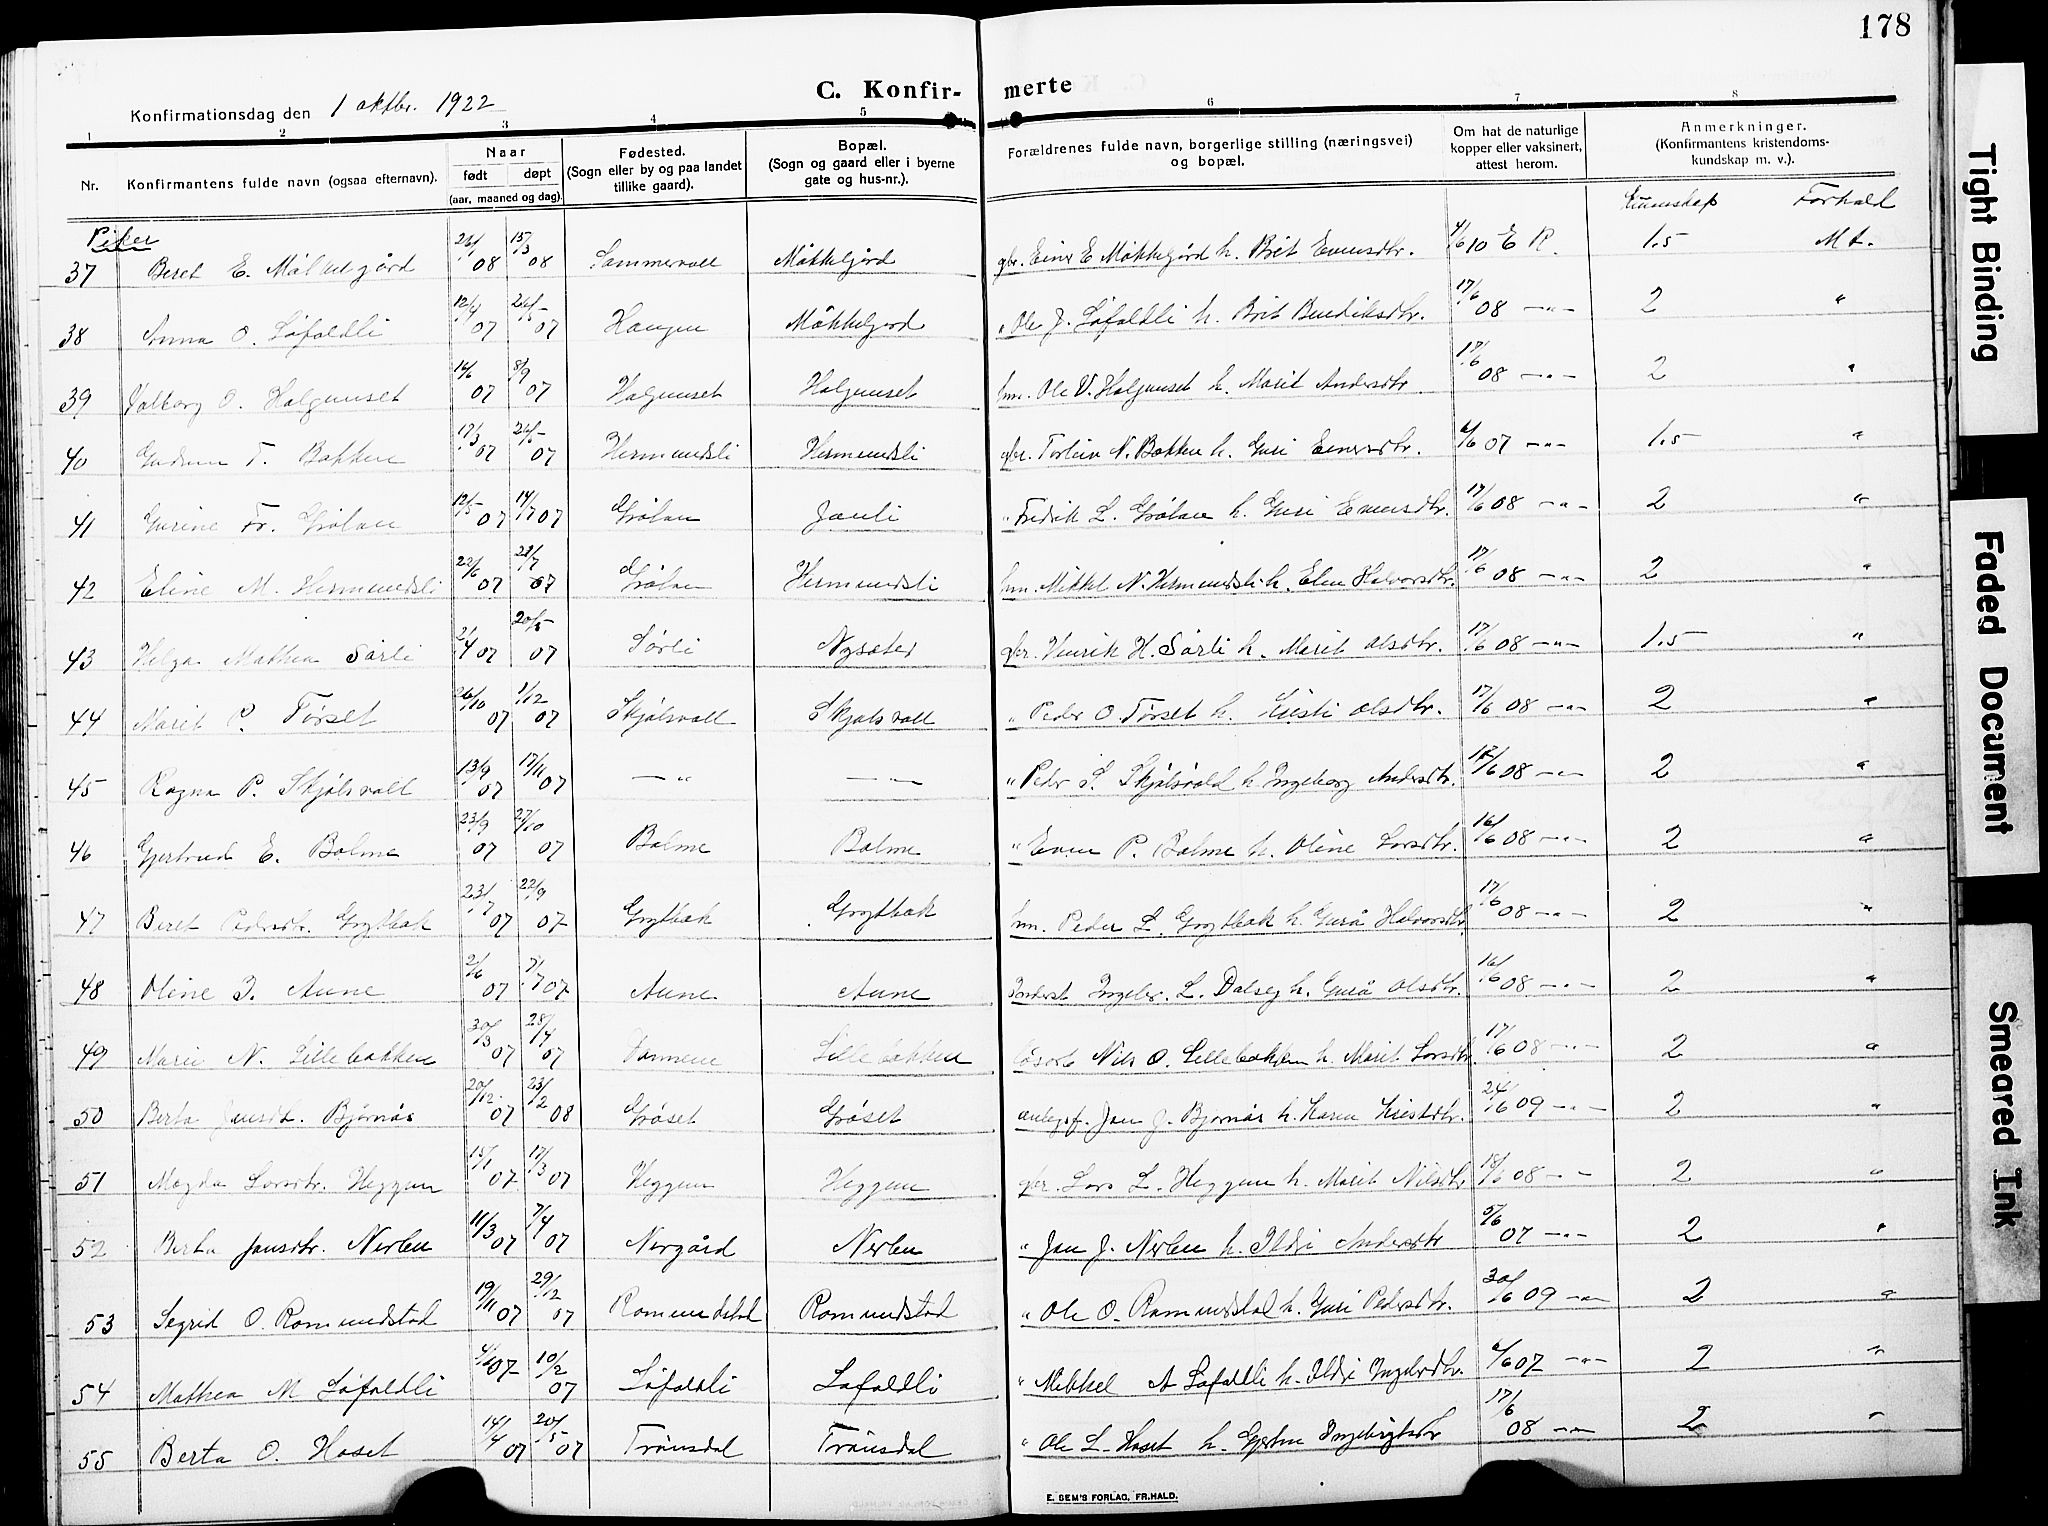 178
C. Konfir- merte
Konfirmationsdag den 1 oktbr. 1922
1 2 3 4 5 6 7 8
Nr. Konfirmantens fulde navn (ogsaa efternavn). Naar født døpt (aar, maaned og dag). Fødested. (Sogn eller by og paa landet tillike gaard). Bopæl. (Sogn og gaard eller i byerne gate og hus-nr.). Forældrenes fulde navn, borgerlige stilling (næringsvei) og bopæl. Om hat de naturlige kopper eller vaksinert, attest herom. Anmerkninger. (Konfirmantens kristendoms-kundskap m. v.).
Kunnskap Forhold
Piker
37 Beret E. Møkkelgård 08 15/3 08 Sammervoll Møkkelgård gbr. Einar E Møkkelgård h. Brit Evensdtr. 10 E R. 1.5 Mt.
38 Anna O. Løfaldli 12/9 07 07 Haugen Møkkelgord " Ole J. Løfaldli h. Brit Bendiksdtr. 17/6 08 -"- 2 "
39 Valborg O. Halgunset 07 8/9 07 Halgunset Halgunset hm. Ole V. Halgunset h. Marit Andersdtr. 17/6 08 -"- 2 "
40 Gudrun T. Bakken 17/3 07 07 Hermundsli Hermundsli gbr. Torleiv N. Bakken h. Guri Einarsdtr. 07 -"- 1.5 "
41 Gurine Fr. Grøtan 12/5 07 14/7 07 Grøtan Janli " Fredrik L. Grøtan h. Guri Evensdtr. 17/6 08 -"- 2 "
42 Eline M. Hermundsli 22/6 07 07 Grøtan Hermundsli hm. Mikkel N. Hermundsli h. Elen Halvorsdtr. 17/6 08 -"- 2 "
43 Helga Mathea Sørli 2/4 07 20/5 07 Sørli Nysæter gbr. Henrik H. Sørli h. Marit Olsdtr. 17/6 08 -"- 1.5 "
44 Marit P. Tørset 26/10 07 1/12 07 Skjølsvoll Skjølsvoll " Peder O. Tørset h. Kristi Olsdtr. 17/6 08 -"- 2 "
45 Ragna P. Skjølsvoll 13/9 07 17/11 07 -"- -"- " Peder S. Skjølsvold h Ingeborg Andersdtr. 08 -"- 2 "
46 Gjertrud E. Bolme 23/9 07 27/10 07 Bolme Bolme " Even P. Bolme h. Oline Larsdtr. 16/6 08 -"- 2 "
47 Beret Pedersdtr. Grytbak 23/7 07 22/9 07 Grytbak Grytbak hm. Peder L. Grytbak h. Gurå Halvorsdtr. 17/6 08 -"- 2 "
48 Oline I. Aune 2/6 07 07 Aune Aune Inderst Ingebr. L. Dalseg h. Gurå Olsdtr. 16/6 08 -"- 2 "
49 Marie N. Lillebakken 30/3 07 28/4 07 Lillebakken løsarb Nils O. Lillebakken h. Marit Larsdtr. 17/6 08 -"- 2 "
50 Berta Jansdtr. Bjørnås 20/12 07 23/2 08 Grøset Grøset anlegsf. Jan J. Bjørnås h. Karen Kristsdtr. 24/6 09 -"- 2 "
51 Magda Larsdtr. Heggem 15/1 07 17/3 07 Heggem Heggem gbr. Lars L. Heggem h. Marit Nilsdtr. 08 -"- 2 "
52 Berta Jansdtr. Nerlen 11/3 07 7/4 07 Nergård Nerlen " Jan J. Nerlen h. Ildri Andersdtr 5/6 07 -"- 2 "
53 Segrid O. Romundstad 19/11 07 29/12 07 Romundstad Romundstad " Ole O. Romundstad h. Guri Pedersdtr. 30/6 09 -"- 2 "
54 Mathea M Løfaldli 07 10/2 07 Løfaldli Løfaldli " Mikkel A Løfaldli h. Ildri Ingebrdtr. 6/6 07 -"- 2 "
55 Berta O. Hoset 14/4 07 20/5 07 Trønsdal Trønsdal " Ole L. Hoset h. Gjertru Ingebrigtsdtr 17/6 08 -"- 2 "
E. SEM'S FORLAG, FR.HALD.
Tight Binding
Faded Document
Smeared Ink